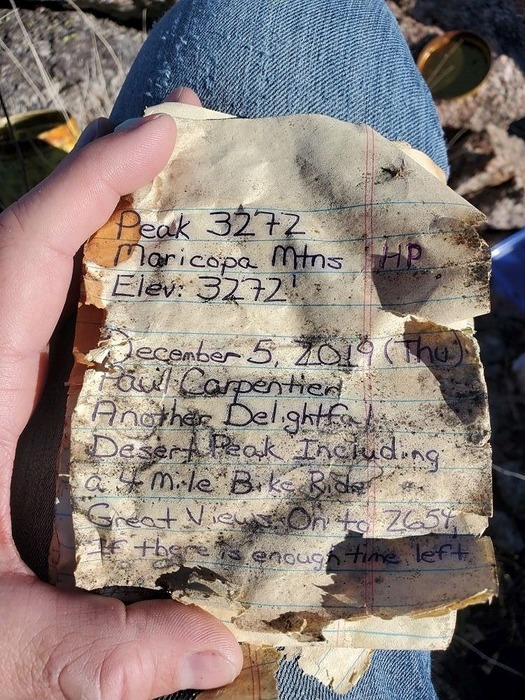 Peak 3272
Maricopa Mtns HP
Elev: 3272'
December 5, 2019 (Thu)
Paul Carpentier
Another Delightful
Desert Peak Including
a 4 Mile Bike Ride
Great Views. On to 2654,
If there is enough time left